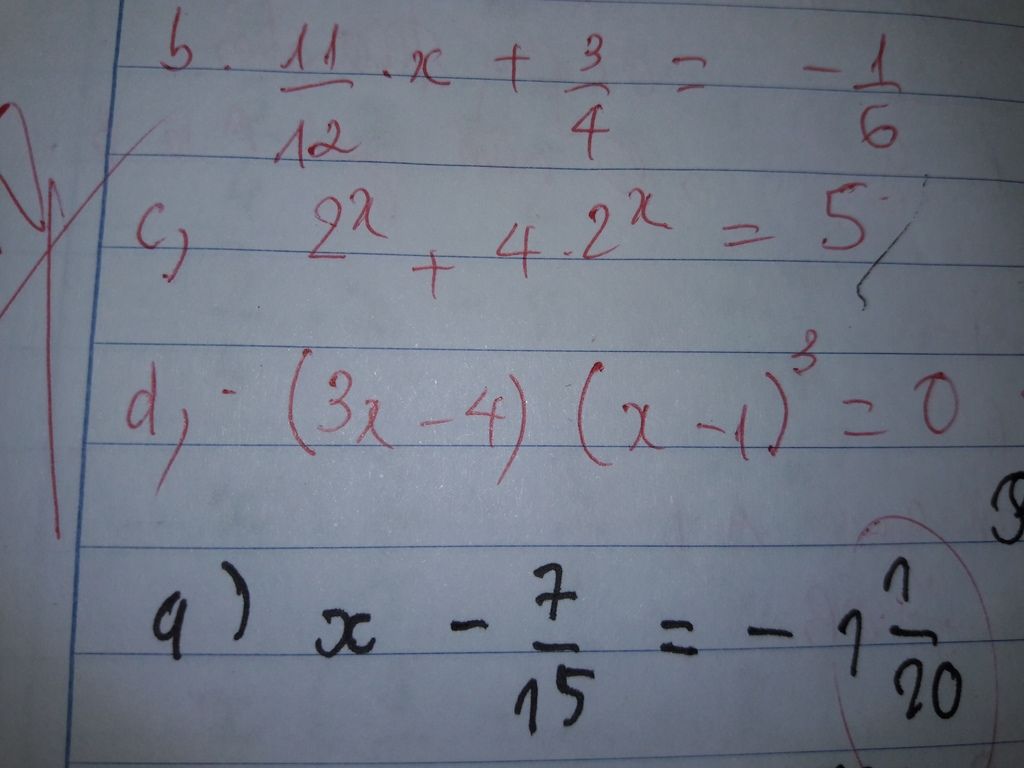 b. 11/12 . x + 3/4 = - 1/6
c, 2^x + 4.2^x = 5
d, (3x - 4) (x - 1)^3 = 0
a) x - 7/15 = - 1 1/20